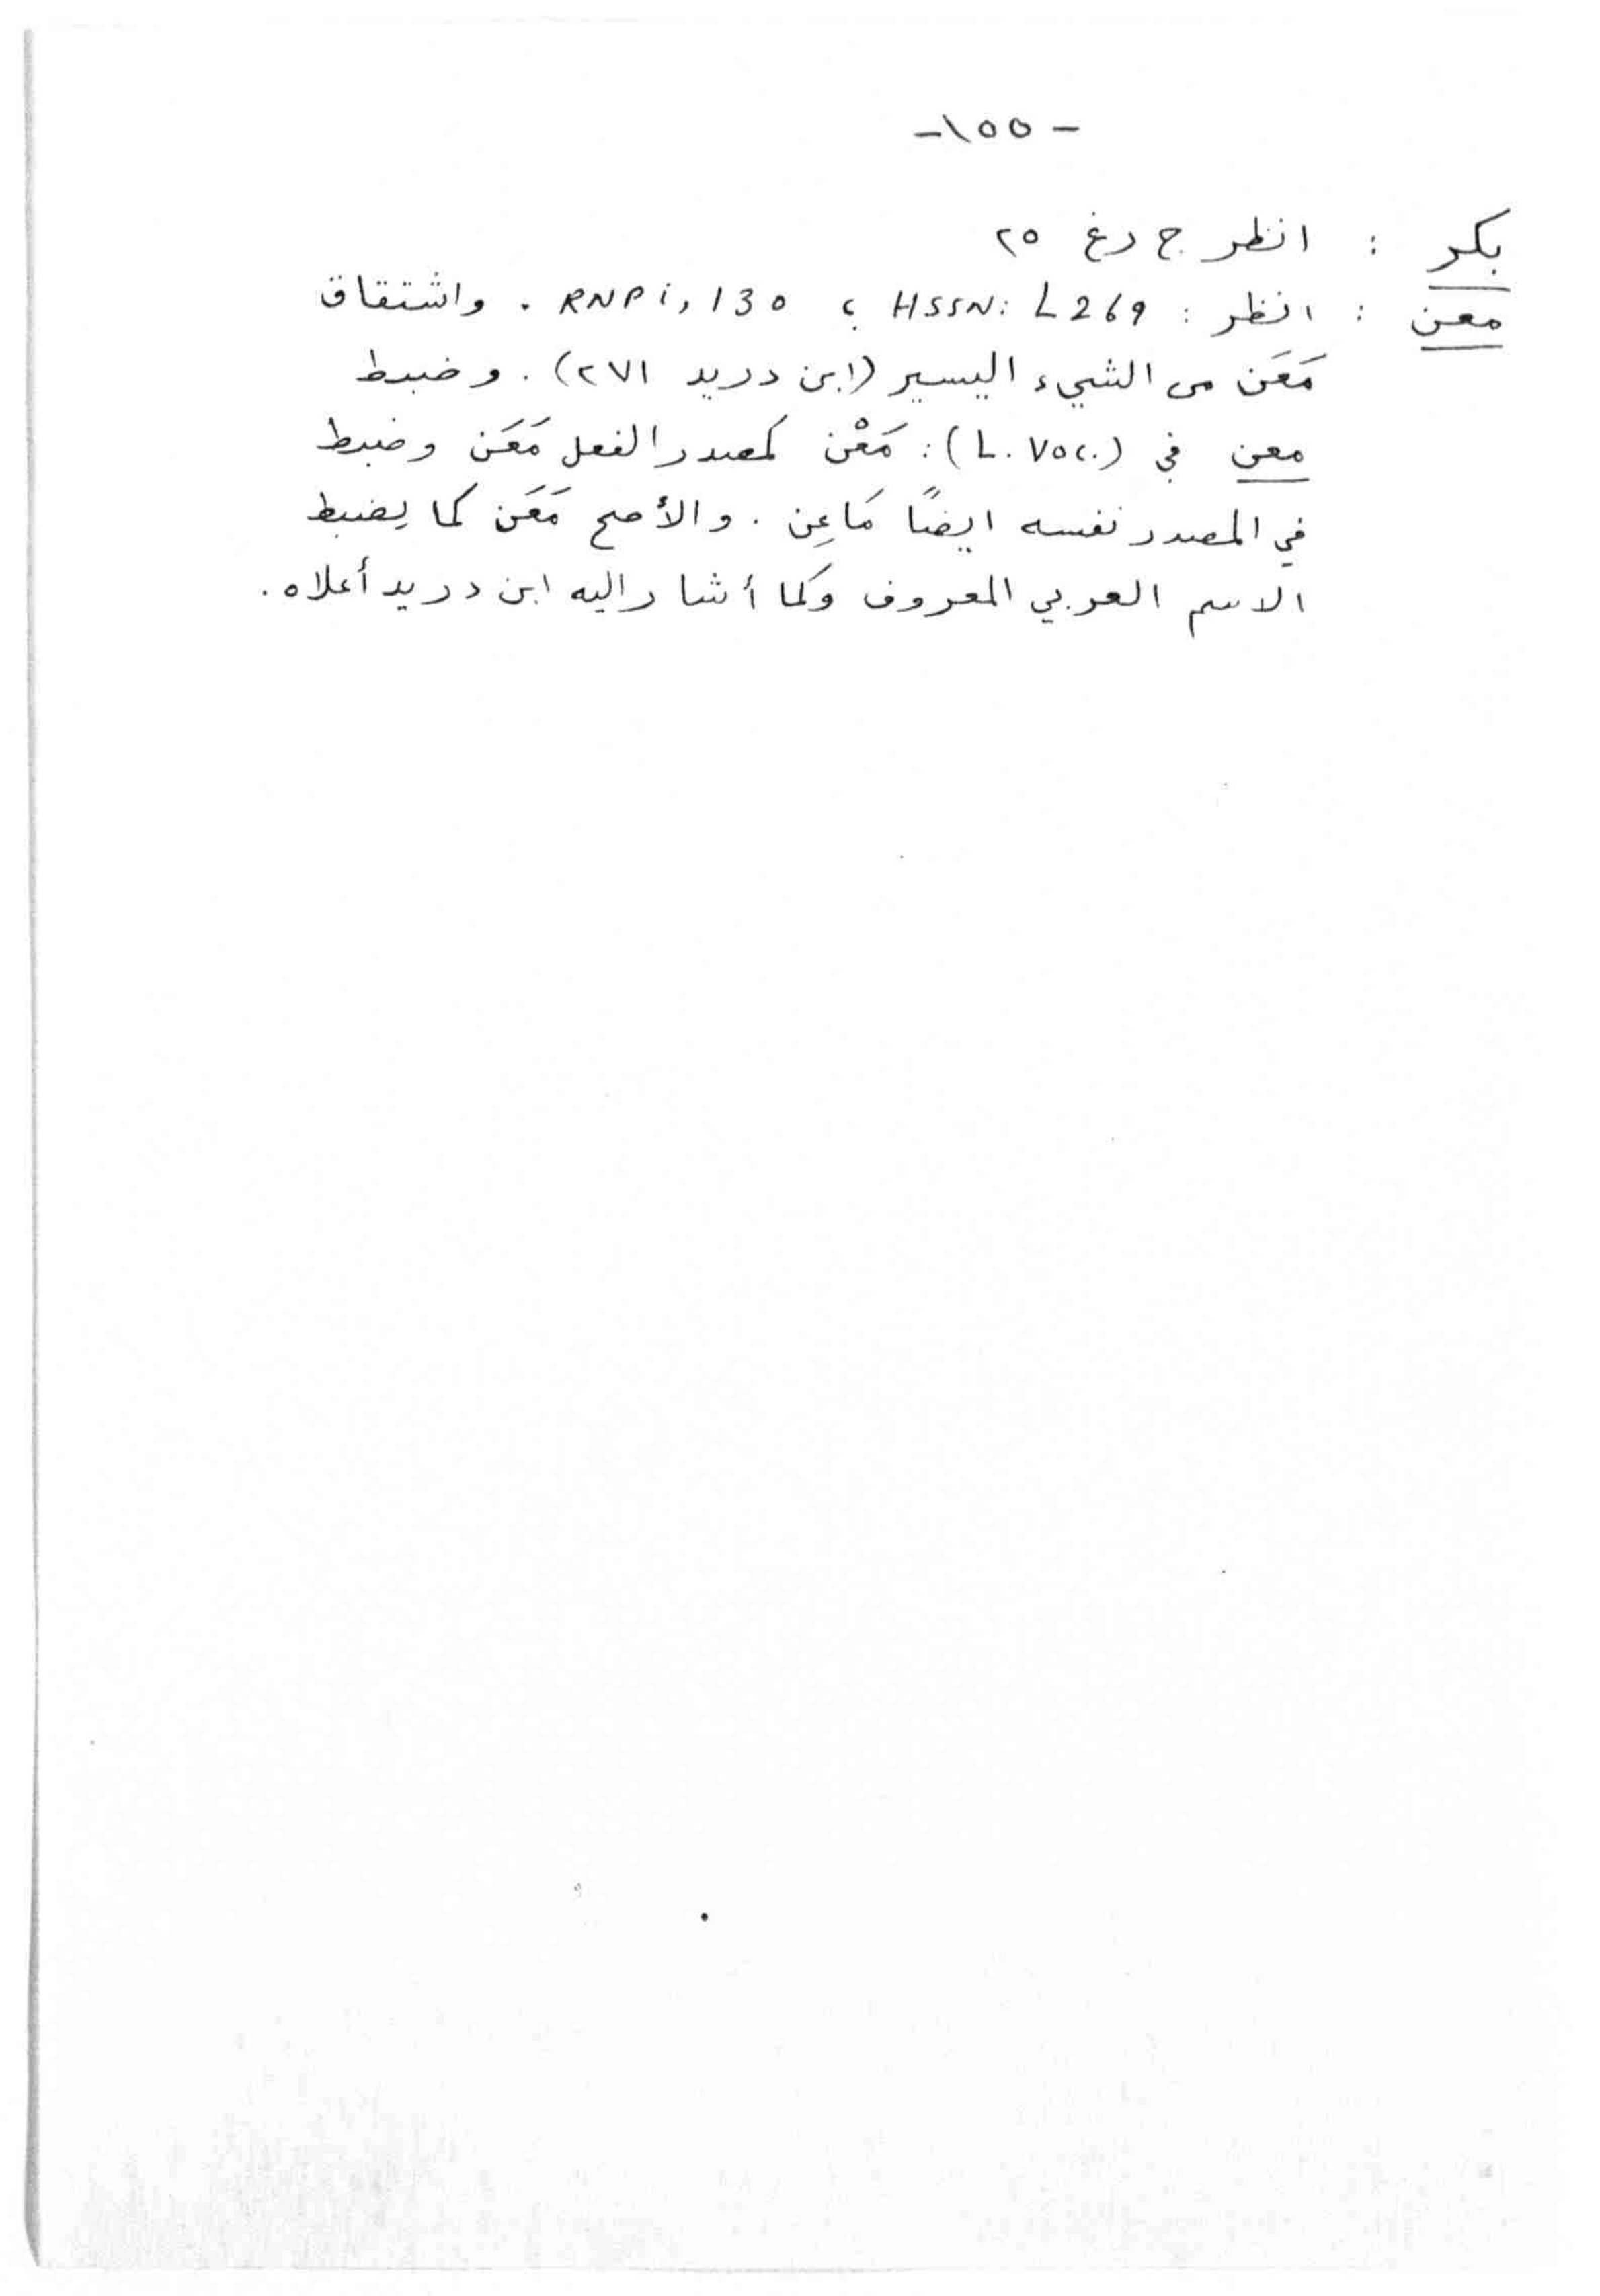 -١٥٥-
بكر : انظر ج رغ ٢٥
معن : انظر : HSSN: L269 ؛ RNPi, 130 . واشتقاق
مَعَن من الشيء اليسير (ابن دريد ٢٧١) . وضبط
معن في (L. Voc.) : مَعْن كمصدر الفعل مَعَن وضبط
في المصدر نفسه ايضًا مَاعِن . والأصح مَعَن كما يضبط
الاسم العربي المعروف وكما أشار اليه ابن دريد أعلاه .